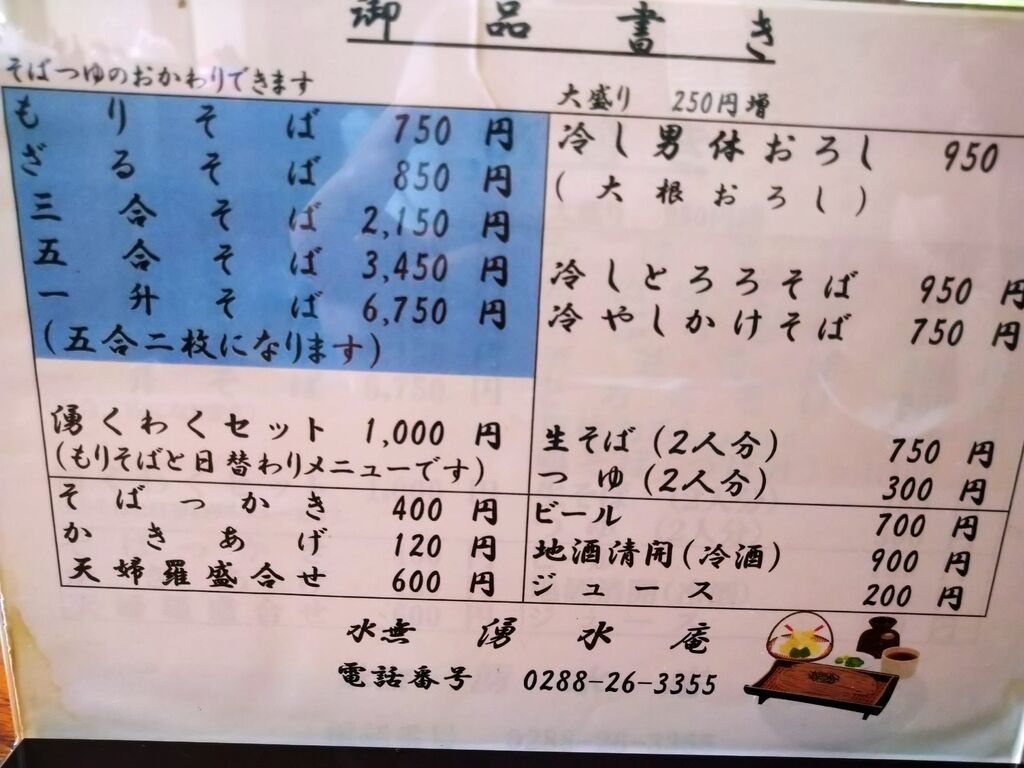 御品書き
そばつゆのおかわりできます
もりそば 750 円
ざるそば 850 円
三合そば 2,150 円
五合そば 3,450 円
一升そば 6,750 円
(五合二枚になります)
湧くわくセット 1,000 円
(もりそばと日替わりメニューです)
そばつかき 400 円
かきあげ 120 円
天婦羅盛合せ 600 円
大盛り 250円増
冷し男体おろし 950
(大根おろし)
冷しとろろそば 950 円
冷やしかけそば 750 円
生そば(2人分) 750 円
つゆ(2人分) 300 円
ビール 700 円
地酒清開(冷酒) 900 円
ジュース 200 円
水無 湧水庵
電話番号 0288-26-3355